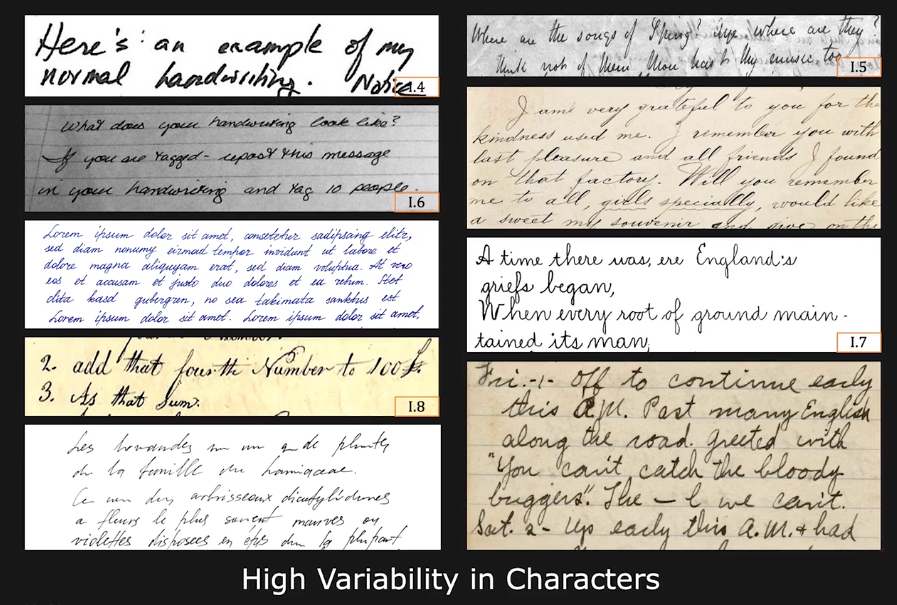 Here's an example of my
normal handwriting. Notice
I.4
What does your handwriting look like?
If you are tagged - repost this message
in your handwriting and tag 10 people.
I.6
Lorem ipsum dolor sit amet, consetetur sadipscing elitr,
sed diam nonumy eirmod tempor invidunt ut labore et
dolore magna aliquyam erat, sed diam voluptua. At vero
eos et accusam et justo duo dolores et ea rebum. Stet
clita kasd gubergren, no sea takimata sanctus est
Lorem ipsum dolor sit amet. Lorem ipsum dolor sit amet.
2. add that fourth Number to 100
3. As that Sum.
I.8
Les lavandes
de la famille des Lamiaceae.
arbrisseaux dicotylédones
a fleurs le plus souvent mauves ou
violettes disposées en épis dans la plupart
Where are the songs of Spring? where are they?
Think not of them thou hast thy music too
I.5
I am very grateful to you for the
kindness used me. I remember you with
last pleasure and all friends I found
on that factory. Will you remember
me to all, girls specially, would like
a sweet my souvenir and give on the
A time there was, ere England's
griefs began,
When every root of ground main-
tained its man;
I.7
Fri.-1- Off to continue early
this A.M. Past many English
along the road. Greeted with
"You can't catch the bloody
buggers". The - l we can't.
Sat. 2- Up early this A.M. + had
High Variability in Characters